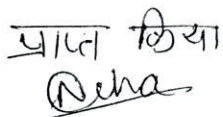 प्राप्त किया
Neha